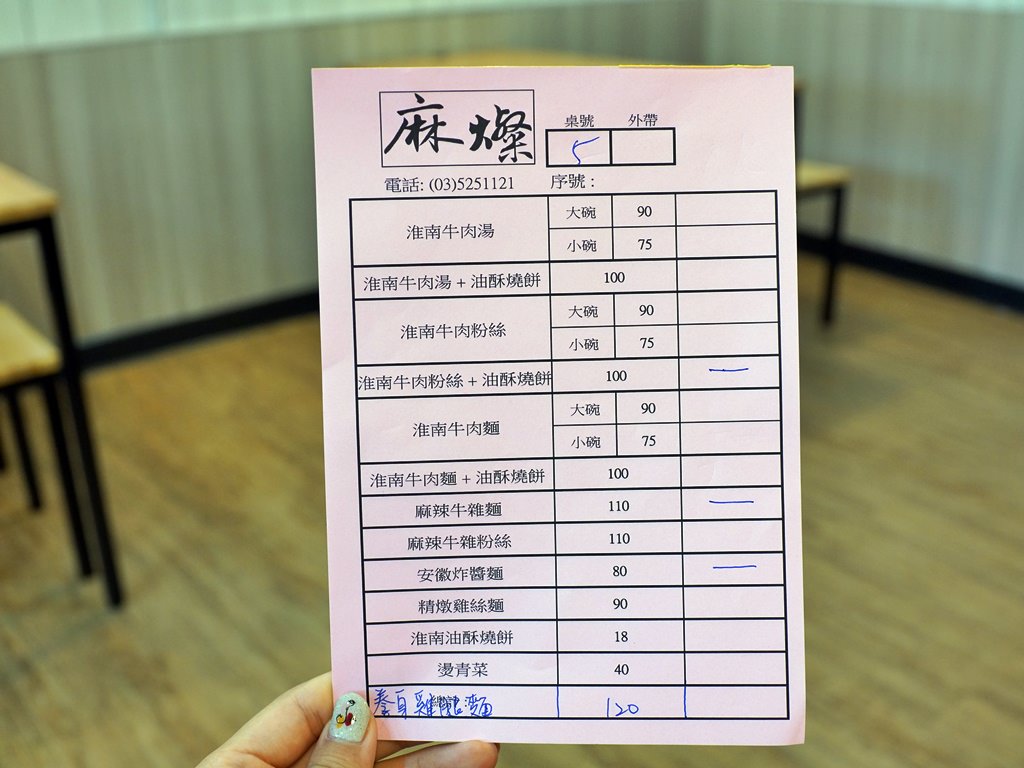 麻燦
桌號 外帶
5
電話: (03)5251121 序號 :
淮南牛肉湯 大碗 90
小碗 75
淮南牛肉湯 + 油酥燒餅 100
淮南牛肉粉絲 大碗 90
小碗 75
淮南牛肉粉絲 + 油酥燒餅 100 一
淮南牛肉麵 大碗 90
小碗 75
淮南牛肉麵 + 油酥燒餅 100
麻辣牛雜麵 110 一
麻辣牛雜粉絲 110
安徽炸醬麵 80 一
精燉雞絲麵 90
淮南油酥燒餅 18
燙青菜 40
養身雞腿麵 120